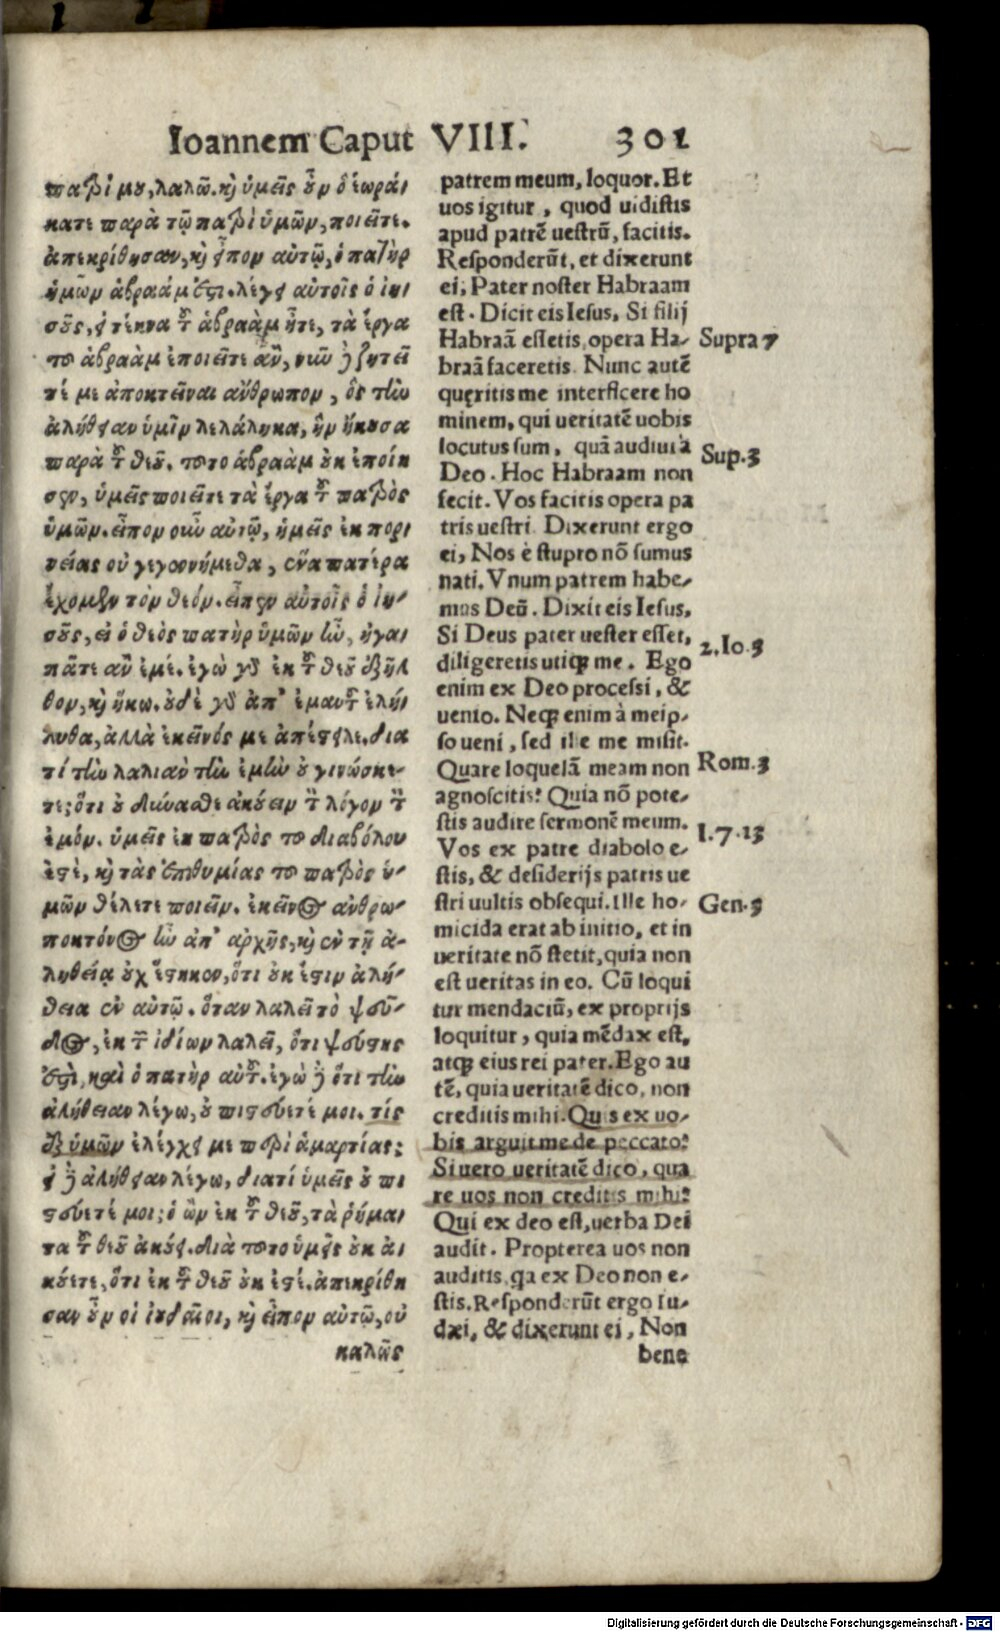 1 2
Ioannem Caput VIII. 301
πατρί μου, λαλῶ. κỳ ὑμεῖς οὖν ὃ ἑωρά-
κατε παρὰ τῷ πατρὶ ὑμῶν, ποιεῖτε.
ἀπεκρίθησαν, κỳ εἶπον αὐτῷ, ὁ πατὴρ
ἡμῶν ἀβραάμ ἐστι. λέγει αὐτοῖς ὁ ἰη-
σοῦς, εἰ τέκνα τοῦ ἀβραὰμ ἦτε, τὰ ἔργα
τοῦ ἀβραὰμ ἐποιεῖτε ἄν, νῦν δὲ ζητεῖ
τέ με ἀποκτεῖναι ἄνθρωπον, ὃς τὴν
ἀλήθειαν ὑμῖν λελάληκα, ἣν ἤκουσα
παρὰ τοῦ θεοῦ. τοῦτο ἀβραὰμ οὐκ ἐποίη
σεν, ὑμεῖς ποιεῖτε τὰ ἔργα τοῦ πατρὸς
ὑμῶν. εἶπον οὖν αὐτῷ, ἡμεῖς ἐκ πορ
νείας οὐ γεγεννήμεθα, ἕνα πατέρα
ἔχομεν τὸν θεόν. εἶπεν αὐτοῖς ὁ ἰη-
σοῦς, εἰ ὁ θεὸς πατὴρ ὑμῶν ἦν, ἠγα-
πᾶτε ἂν ἐμέ. ἐγὼ γὰρ ἐκ τοῦ θεοῦ ἐξῆλ
θον, κỳ ἥκω. οὐδὲ γὰρ ἀπ' ἐμαυτοῦ ἐλή-
λυθα, ἀλλὰ ἐκεῖνός με ἀπέστειλε. δια
τί τὴν λαλιὰν τὴν ἐμὴν οὐ γινώσκε-
τε; ὅτι οὐ δύνασθε ἀκούειν τὸν λόγον τὸν
ἐμόν. ὑμεῖς ἐκ πατρὸς τοῦ διαβόλου
ἐστέ, κỳ τὰς ἐπιθυμίας τοῦ πατρὸς ὑ-
μῶν θέλετε ποιεῖν. ἐκεῖνος ἀνθρω-
ποκτόνος ἦν ἀπ' ἀρχῆς, κỳ ἐν τῇ ἀ-
ληθείᾳ οὐχ ἕστηκεν, ὅτι οὐκ ἔστιν ἀλή-
θεια ἐν αὐτῷ. ὅταν λαλεῖ τὸ ψεῦ-
δος, ἐκ τῶν ἰδίων λαλεῖ, ὅτι ψεύστης
ἐστὶ, καὶ ὁ πατὴρ αὐτοῦ. ἐγὼ δὲ ὅτι τὴν
ἀλήθειαν λέγω, οὐ πιστεύετέ μοι. τίς
ἐξ ὑμῶν ἐλέγχει με περὶ ἁμαρτίας;
εἰ δὲ ἀλήθειαν λέγω, διατί ὑμεῖς οὐ πι
στεύετέ μοι; ὁ ὢν ἐκ τοῦ θεοῦ, τὰ ῥήμα-
τα τοῦ θεοῦ ἀκούει. διὰ τοῦτο ὑμεῖς οὐκ ἀ-
κούετε, ὅτι ἐκ τοῦ θεοῦ οὐκ ἐστέ. ἀπεκρίθη
σαν οὖν οἱ ἰουδαῖοι, κỳ εἶπον αὐτῷ, οὐ
καλῶς
patrem meum, loquor. Et
uos igitur, quod uidistis
apud patrẽ uestrũ, facitis.
Responderũt, et dixerunt
ei, Pater noster Habraam
est. Dicit eis Iesus, Si filij
Habraã essetis, opera Ha-
braã faceretis. Nunc autẽ
quęritis me interficere ho
minem, qui ueritatẽ uobis
locutus sum, quã audiui à
Deo. Hoc Habraam non
fecit. Vos facitis opera pa
tris uestri. Dixerunt ergo
ei, Nos è stupro nõ sumus
nati. Vnum patrem habe-
mus Deũ. Dixit eis Iesus,
Si Deus pater uester esset,
diligeretis utiqꝫ me. Ego
enim ex Deo processi, &
uenio. Neqꝫ enim à meip-
so ueni, sed ille me misit.
Quare loquelã meam non
agnoscitis? Quia nõ pote-
stis audire sermonẽ meum.
Vos ex patre diabolo e-
stis, & desiderijs patris ue
stri uultis obsequi. Ille ho-
micida erat ab initio, et in
ueritate nõ stetit, quia non
est ueritas in eo. Cũ loqui
tur mendaciũ, ex proprijs
loquitur, quia mẽdax est,
atqꝫ eius rei pater. Ego au
tẽ, quia ueritatẽ dico, non
creditis mihi. Quis ex uo-
bis arguit me de peccato?
Si uero ueritatẽ dico, qua
re uos non creditis mihi?
Qui ex deo est, uerba Dei
audit. Propterea uos non
auditis, qa ex Deo non e-
stis. Responderũt ergo Iu-
dæi, & dixerunt ei, Non
bene
Supra 7
Sup. 3
2. Io. 3
Rom. 3
I. 7. 13
Gen. 3
Digitalisierung gefördert durch die Deutsche Forschungsgemeinschaft - DFG